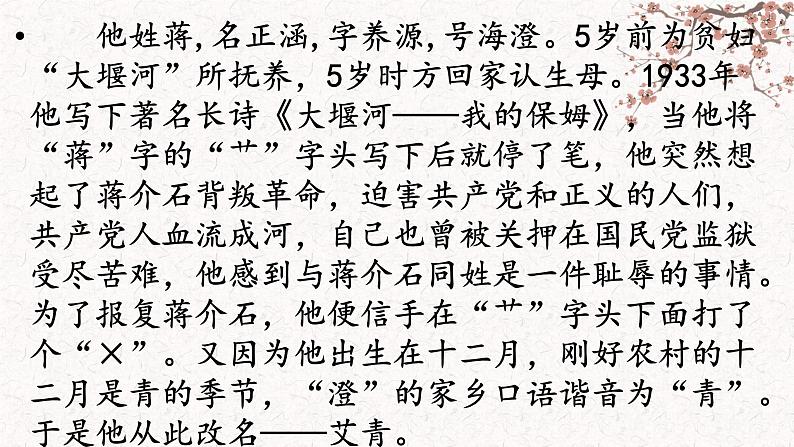 • 他姓蒋,名正涵,字养源,号海澄。5岁前为贫妇
“大堰河”所抚养，5岁时方回家认生母。1933年
他写下著名长诗《大堰河——我的保姆》，当他将
“蒋”字的“艹”字头写下后就停了笔，他突然想
起了蒋介石背叛革命，迫害共产党和正义的人们，
共产党人血流成河，自己也曾被关押在国民党监狱
受尽苦难，他感到与蒋介石同姓是一件耻辱的事情。
为了报复蒋介石，他便信手在“艹”字头下面打了
个“×”。又因为他出生在十二月，刚好农村的十
二月是青的季节，“澄”的家乡口语谐音为“青”。
于是他从此改名——艾青。